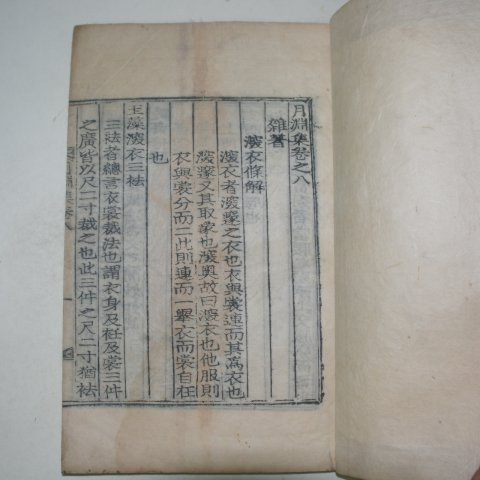 月淵集卷之八
雜著
深衣條解
深衣者深邃之衣也衣與裳連而其爲衣也
深邃又其取象也深奧故曰深衣也他服則
衣與裳分而二此則連而一擧衣而裳自在
也
玉藻深衣三袪
三袪者總言衣裳裁法也謂衣身及袵及裳三件
之廣皆以尺二寸裁之也此三件之尺二寸猶袪